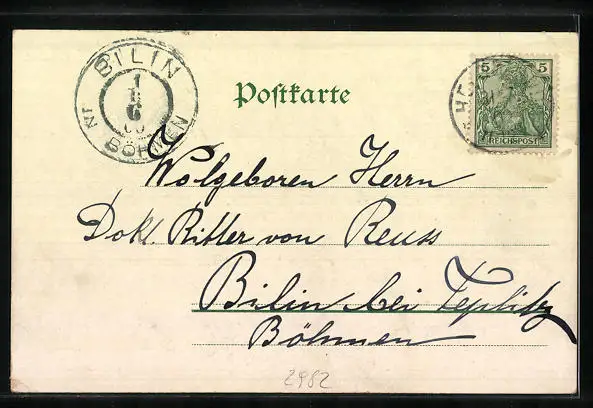 BILIN
1
6
00
IN BÖHMEN
Postkarte
5 5
REICHSPOST
Wolgeboren Herrn
Dokt. Ritter von Reuss
Bilin bei Teplitz
Böhmen
2982